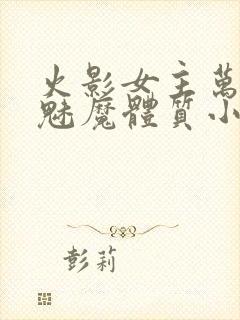 火影女主萬
魅魔體質小
彭莉